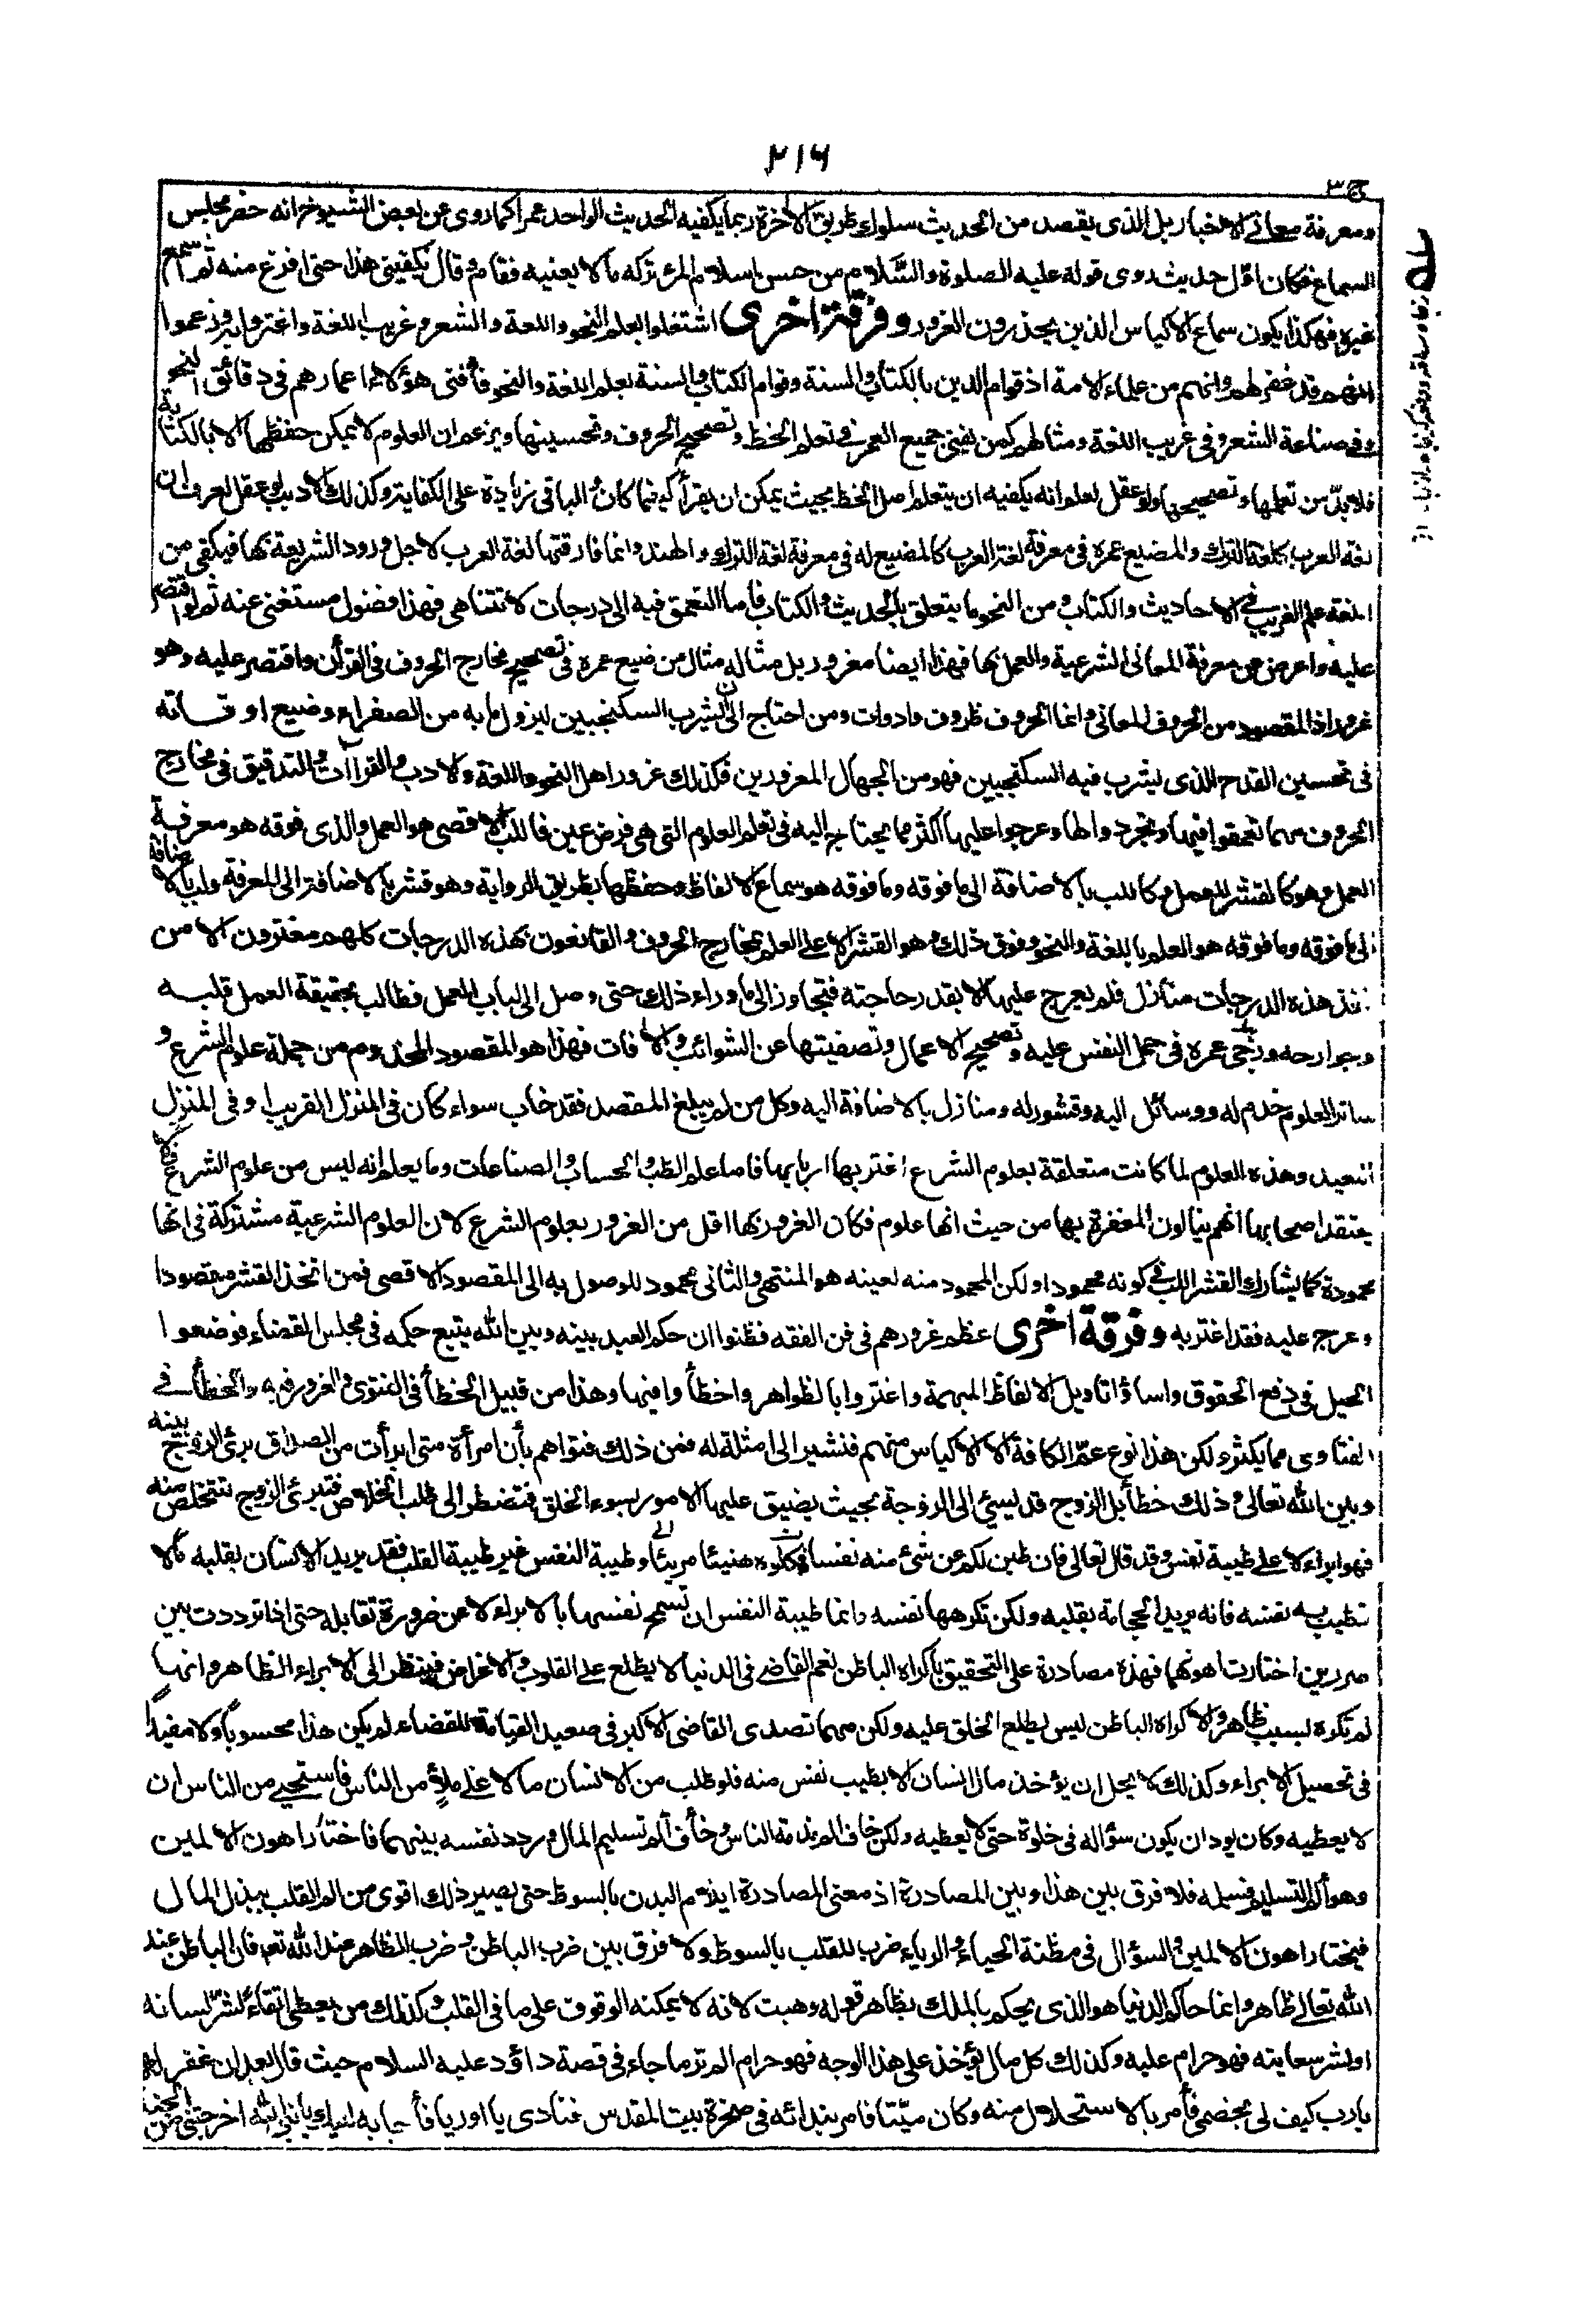 ٢١٦
ج ٣
ومعرفة معانى الاخبار بل الذى يقصد من الحديث سلوك طريق الآخرة ربما يكفيه الحديث الواحد عمرا كما روى عن بعض الشيوخ انه حضر مجلس
السماع فكان اوّل حديث روى قوله عليه الصلوة والسّلام من حسن اسلام المرء تركه ما لا يعنيه فقام وقال يكفينى هذا حتى افرغ منه ثم اسمع
غيره فهكذا يكون سماع الاكياس الذين يحذرون الغرور وفرقة اخرى اشتغلوا بعلم النحو واللغة والشعر وغريب اللغة واغتروا به وزعموا
انهم قد غفر لهم وانهم من علماء الامة اذ قوام الدين بالكتاب والسنة وقوام الكتاب والسنة بعلم اللغة والنحو فأفنى هؤلاء اعمارهم فى دقائق النحو
وفى صناعة الشعر وفى غريب اللغة ومثالهم كمن يفنى جميع العمر فى تعلم الخط وتصحيح الحروف وتحسينها ويزعم ان العلوم لا يمكن حفظها الا بالكتابة
فلا بدّ من تعلمها وتصحيحها ولو عقل لعلم انه يكفيه ان يتعلم اصل الخط بحيث يمكن ان يقرأ كيفما كان والباقى زيادة على الكفاية وكذلك الاديب لو عقل لعرف ان
لغة العرب كلغة الترك والمضيع عمره فى معرفة لغة العرب كالمضيع له فى معرفة لغة الترك والهند وانما فارقتها لغة العرب لاجل ورود الشريعة بها فيكفى من
اللغة علم الغريبين فى الاحاديث والكتاب ومن النحو ما يتعلق بالحديث والكتاب فاما التعمق فيه الى درجات لا تتناهى فهذا فضول مستغنى عنه ثم لو اقتصر
عليه واعرض عن معرفة المعانى الشرعية والعمل بها فهذا ايضا مغرور بل مثاله مثال من ضيع عمره فى تصحيح مخارج الحروف فى القرآن واقتصر عليه وهو
غرور اذ المقصود من الحروف المعانى وانما الحروف ظروف وادوات ومن احتاج الى ان يشرب السكنجبين ليزول ما به من الصفراء وضيع اوقاته
فى تحسين القدح الذى يشرب فيه السكنجبين فهو من الجهال المغرورين فكذلك غرور اهل النحو واللغة والادب والقراآت والتدقيق فى مخارج
الحروف مهما تعمقوا فيها وتجردوا لها وعرجوا عليها اكثر مما يحتاج اليه فى تعلم العلوم التى هى فرض عين فاللب الاقصى هو العمل والذى فوقه هو معرفة
العمل وهو كالقشر للعمل وكاللب بالاضافة الى ما فوقه وما فوقه هو سماع الالفاظ وحفظها بطريق الرواية وهو قشر بالاضافة الى المعرفة ولب بالاضافة
الى ما فوقه وما فوقه هو العلم باللغة والنحو وفوق ذلك وهو القشر الاعلى العلم بمخارج الحروف والقانعون بهذه الدرجات كلهم مغترون الا من
اتخذ هذه الدرجات منازل فلم يعرج عليها الا بقدر حاجته فتجاوز الى ما وراء ذلك حتى وصل الى لباب العمل فطالب بحقيقة العمل قلبه
وجوارحه ورجّى عمره فى حمل النفس عليه وتصحيح الاعمال وتصفيتها عن الشوائب والآفات فهذا هو المقصود المخدوم من جملة علوم الشرع و
سائر العلوم خدم له ووسائل اليه وقشور له ومنازل بالاضافة اليه وكل من لم يبلغ المقصد فقد خاب سواء كان فى المنزل القريب او فى المنزل
البعيد وهذه العلوم لما كانت متعلقة بعلوم الشرع اغتر بها اربابها فاما علم الطب والحساب والصناعات وما يعلم انه ليس من علوم الشرع فلا
يعتقد اصحابها انهم ينالون المغفرة بها من حيث انها علوم فكان الغرور بها اقل من الغرور بعلوم الشرع لان العلوم الشرعية مشتركة فى انها
محمودة كما يشارك القشر اللب فى كونه محمودا ولكن المحمود منه لعينه هو المنتهى والثانى محمود للوصول به الى المقصود الاقصى فمن اتخذ القشر مقصودا
وعرج عليه فقد اغتر به وفرقة اخرى عظم غرورهم فى فن الفقه فظنوا ان حكم العبد بينه وبين الله يتبع حكمه فى مجلس القضاء فوضعوا
الحيل فى دفع الحقوق واساؤا تاويل الالفاظ المبهمة واغتروا بالظواهر واخطأوا فيها وهذا من قبيل الخطأ فى الفتوى والغرور فيه والخطأ فى
الفتاوى مما يكثر ولكن هذا نوع عمّ الكافة الا الاكياس منهم فنشير الى امثلة له فمن ذلك فتواهم بأن امرأة متى ابرأت من الصداق برئ الزوج بينه
وبين الله تعالى وذلك خطأ بل الزوج قد يسئ الى الزوجة بحيث يضيق عليها الامور بسوء الخلق فتضطر الى طلب الخلاص فتبرئ الزوج لتتخلص منه
فهو ابراء لا على طيبة نفس وقد قال تعالى فان طبن لكم عن شئ منه نفسا فكلوه هنيئا مريئا وطيبة النفس غير طيبة القلب فقد يريد الانسان بقلبه ما لا
تطيب به نفسه فانه يريد الحجامة بقلبه ولكن تكرهها نفسه وانما طيبة النفس ان تسمح نفسها بالابراء لا عن ضرورة تقابله حتى اذا ترددت بين
ضررين اختارت اهونهما فهذه مصادرة على التحقيق باكراه الباطن نعم القاضى فى الدنيا لا يطلع على القلوب والاغراض فينظر الى الابراء الظاهر وانها
لم تكره بسبب ظاهر والاكراه الباطن ليس يطلع الخلق عليه ولكن مهما تصدى القاضى الاكبر فى صعيد القيامة للقضاء لم يكن هذا محسوباً ولا مفيداً
فى تحصيل الابراء وكذلك لا يحل ان يؤخذ مال انسان الا بطيب نفس منه فلو طلب من الانسان مالا على ملأ من الناس فاستحيى من الناس ان
لا يعطيه وكان يود ان يكون سؤاله فى خلوة حتى لا يعطيه ولكن خاف الم مذمة الناس وخاف ألم تسليم المال وردد نفسه بينهما فاختار اهون الالمين
وهو ألم التسليم فسلمه فلا فرق بين هذا وبين المصادرة اذ معنى المصادرة ايلام البدن بالسوط حتى يصير ذلك اقوى من الم القلب ببذل المال
فيختار اهون الالمين والسؤال فى مظنة الحياء والرياء ضرب للقلب بالسوط ولا فرق بين ضرب الباطن وضرب الظاهر عند الله تعالى فان الباطن عند
الله تعالى ظاهر وانما حاكم الدنيا هو الذى يحكم بالملك بظاهر قوله وهبت لانه لا يمكنه الوقوف على ما فى القلب وكذلك من يعطى اتقاء لشرّ لسانه
او لشر سعايته فهو حرام عليه وكذلك كل مال يؤخذ على هذا الوجه فهو حرام الم تر ما جاء فى قصة داؤد عليه السلام حيث قال بعد ان غفر له
يا رب كيف لى بخصمى فأمر بالاستحلال منه وكان ميّتا فامر بندائه فى صخرة بيت المقدس فنادى يا اوريا فأجابه لبيك يا نبى الله اخرجتنى من الجنة